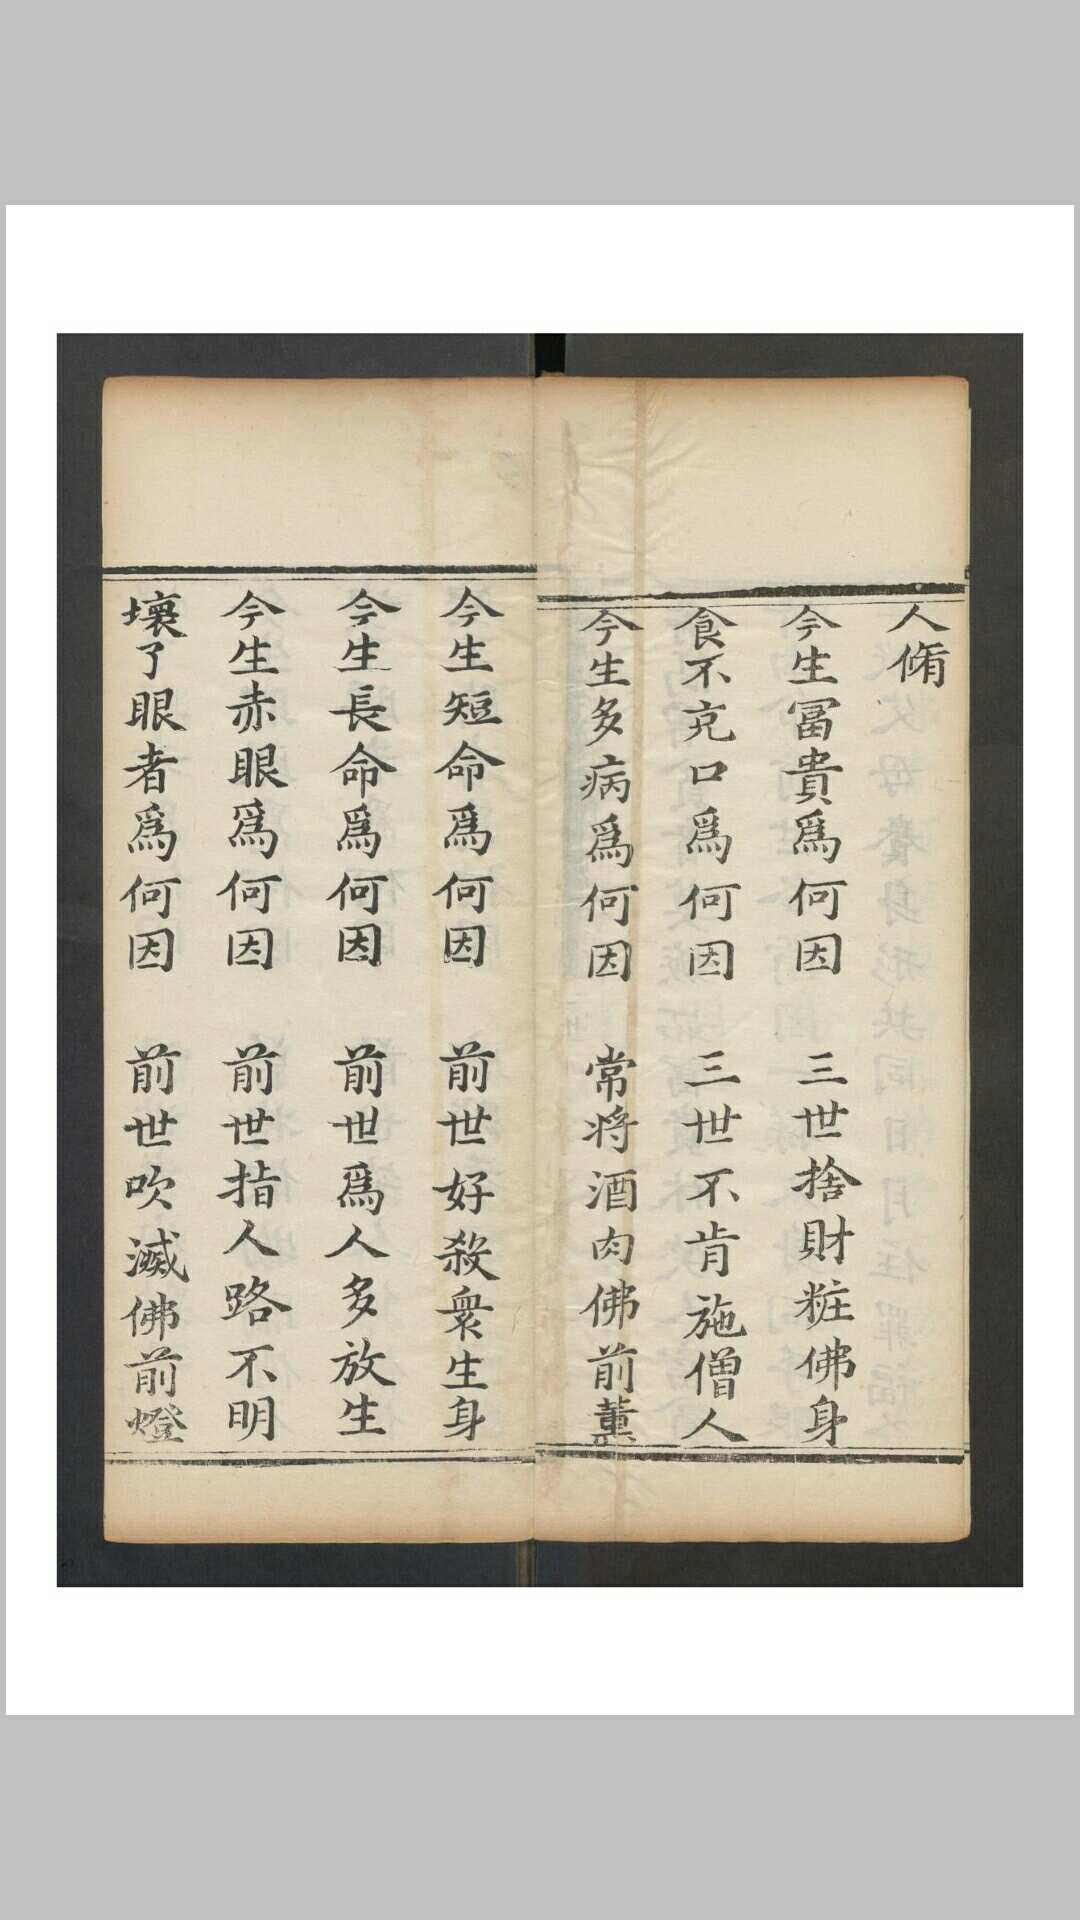 人脩
今生冨貴爲何因　三世捨財粧佛身
食不充口爲何因　三世不肯施僧人
今生多病爲何因　常将酒肉佛前薰
今生短命爲何因　前世好殺衆生身
今生長命爲何因　前世爲人多放生
今生赤眼爲何因　前世指人路不明
壞了眼者爲何因　前世吹滅佛前燈